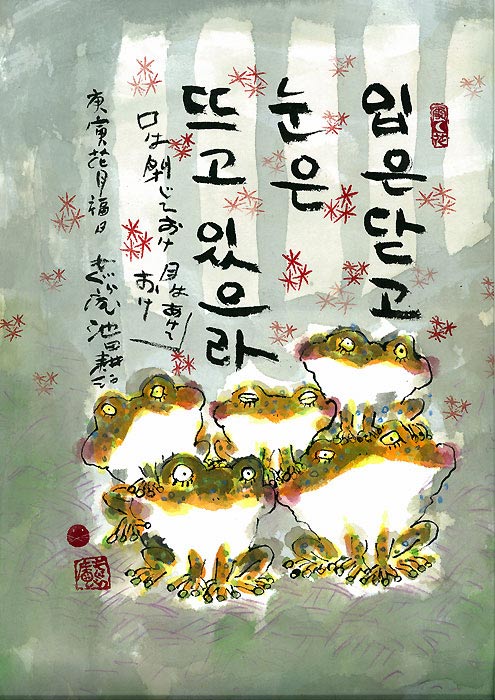 입은닫고
눈은
뜨고 있으라
口は閉じておけ 目はあけて
おけ
庚寅花月福日 池田耕